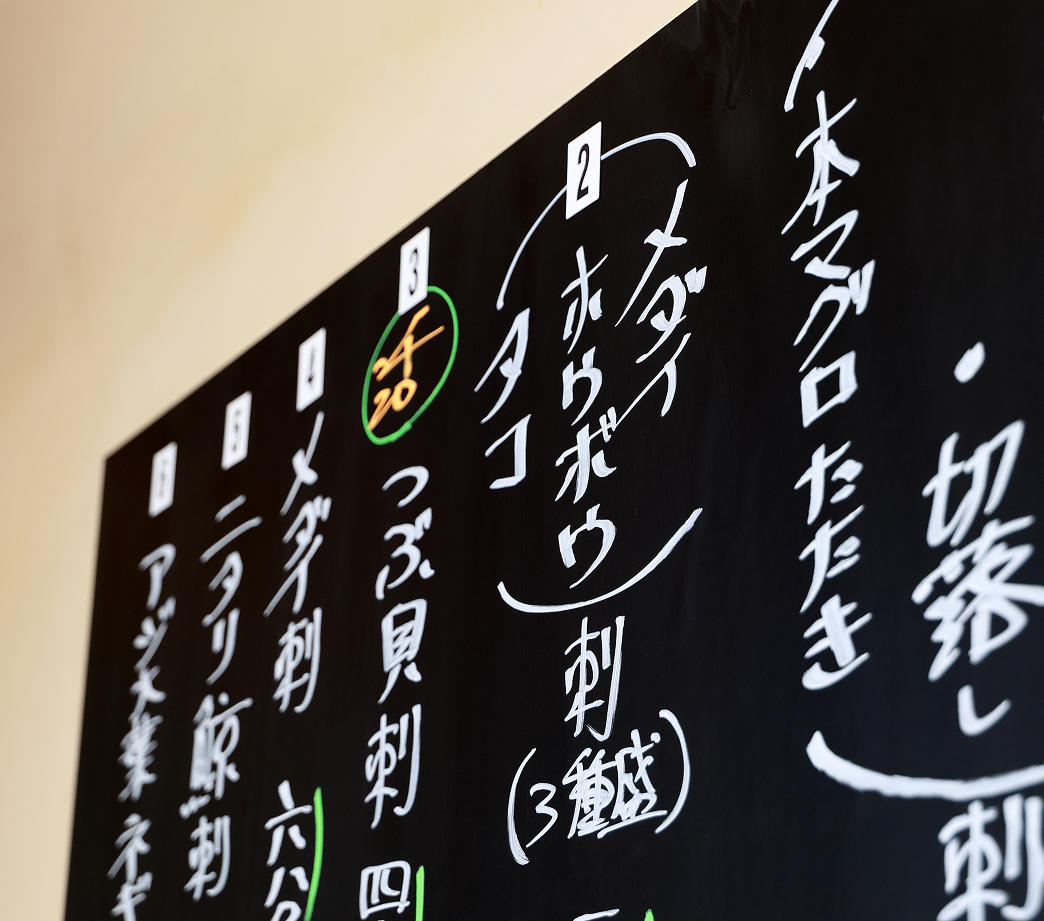 ・切落し刺
本マグロたたき
2
メダイ
ホウボウ
タコ
刺
(3種盛)
3
チ
20
つぶ貝刺 四
4
メダイ刺 六八
5
ニタリ鯨刺
アジ大葉ネギ